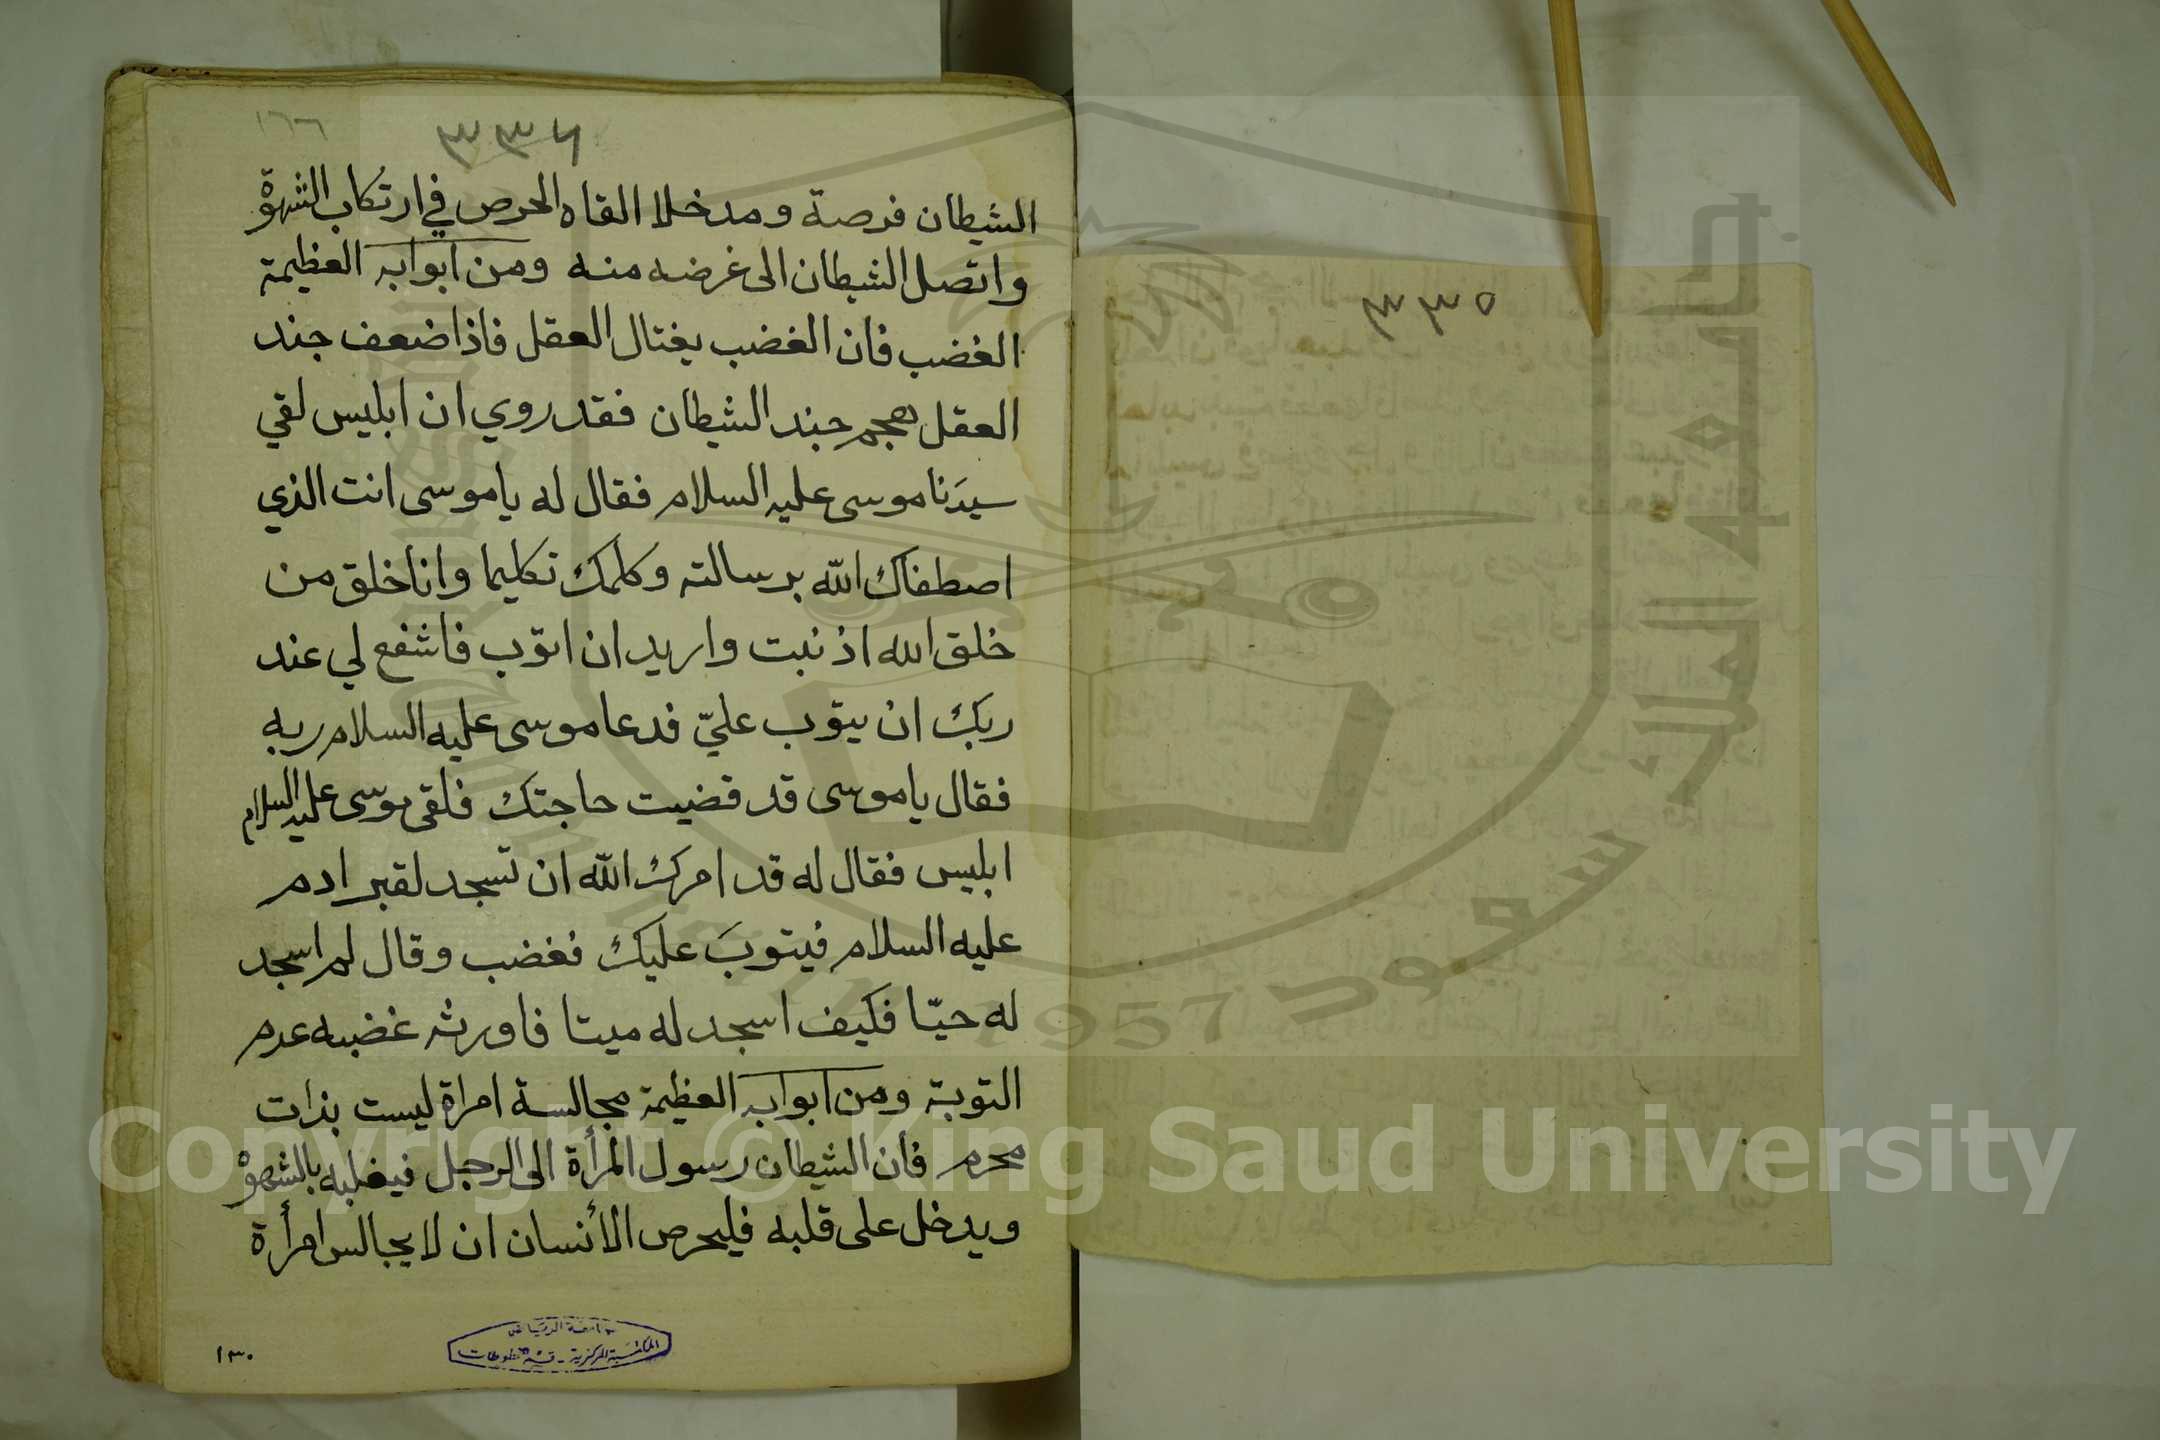 ١٦٦
٣٣٦
٣٣٥
الشيطان فرصة ومدخلا القاه الحرص في ارتكاب الشهوة
واتصل الشيطان الى غرضه منه ومن ابوابه العظيمة
الغضب فان الغضب يغتال العقل فاذا ضعف جند
العقل هجم جند الشيطان فقد روي ان ابليس لقي
سيدَنا موسى عليه السلام فقال له ياموسى انت الذي
اصطفاك الله برسالته وكلمك تكليما وانا خلق من
خلق الله اذنبت واريد ان اتوب فاشفع لي عند
ربك ان يتوب عليّ فدعا موسى عليه السلام ربه
فقال ياموسى قد قضيت حاجتك فلقى موسى عليه السلام
ابليس فقال له قد امرك الله ان تسجد لقبر ادم
عليه السلام فيتوبَ عليك فغضب وقال لم اسجد
له حيّا فكيف اسجد له ميتا فاورثه غضبه عدم
التوبة ومن ابوابه العظيمة مجالسة امراة ليست بذات
محرم فان الشيطان رسول المرأة الى الرجل فيغلبه بالشهوة
ويدخل على قلبه فليحرص الأنسان ان لا يجالس امرأة
جامعة الرياض
المكتبة المركزية - قسم المخطوطات
١٣٠
جامعة الملك سعود
1957
Copyright © King Saud University